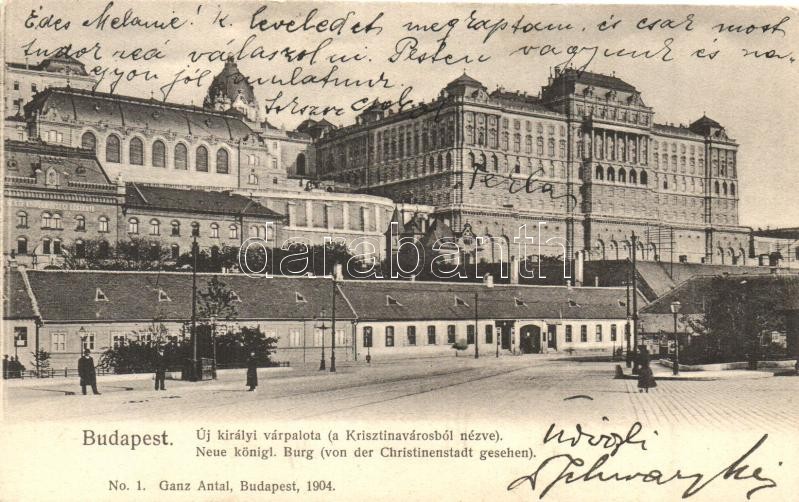 Édes Melanie! K. leveledet megkaptam, és csak most
tudok reá válaszolni. Pesten vagyunk és na-
gyon jól mulatunk.
Sokszor csókol
Terka
darabanth
Budapest.
Új királyi várpalota (a Krisztinavárosból nézve).
Neue königl. Burg (von der Christinenstadt gesehen).
No. 1. Ganz Antal, Budapest, 1904.
Üdvözli